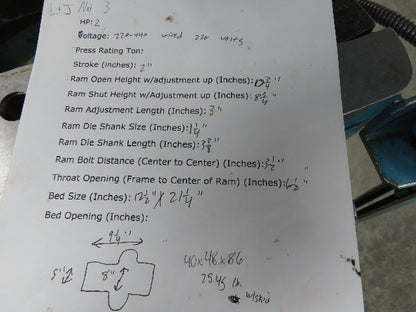 L+J No 3
HP: 2
Voltage: 220-440 wired 220 volts
Press Rating Ton:
Stroke (inches): 2"
Ram Open Height w/adjustment up (Inches): 10 3/4"
Ram Shut Height w/adjustment up (Inches): 8 3/4"
Ram Adjustment Length (Inches): 3"
Ram Die Shank Size (Inches): 1 1/4"
Ram Die Shank Length (Inches): 3 3/8"
Ram Bolt Distance (Center to Center) (Inches): 3 1/2"
Throat Opening (Frame to Center of Ram) (Inches): 6 1/2"
Bed Size (Inches): 12 1/2" X 21 1/4"
Bed Opening (Inches):
9 1/4"
5"
8"
40x48x86
2545 lb.
w/skid